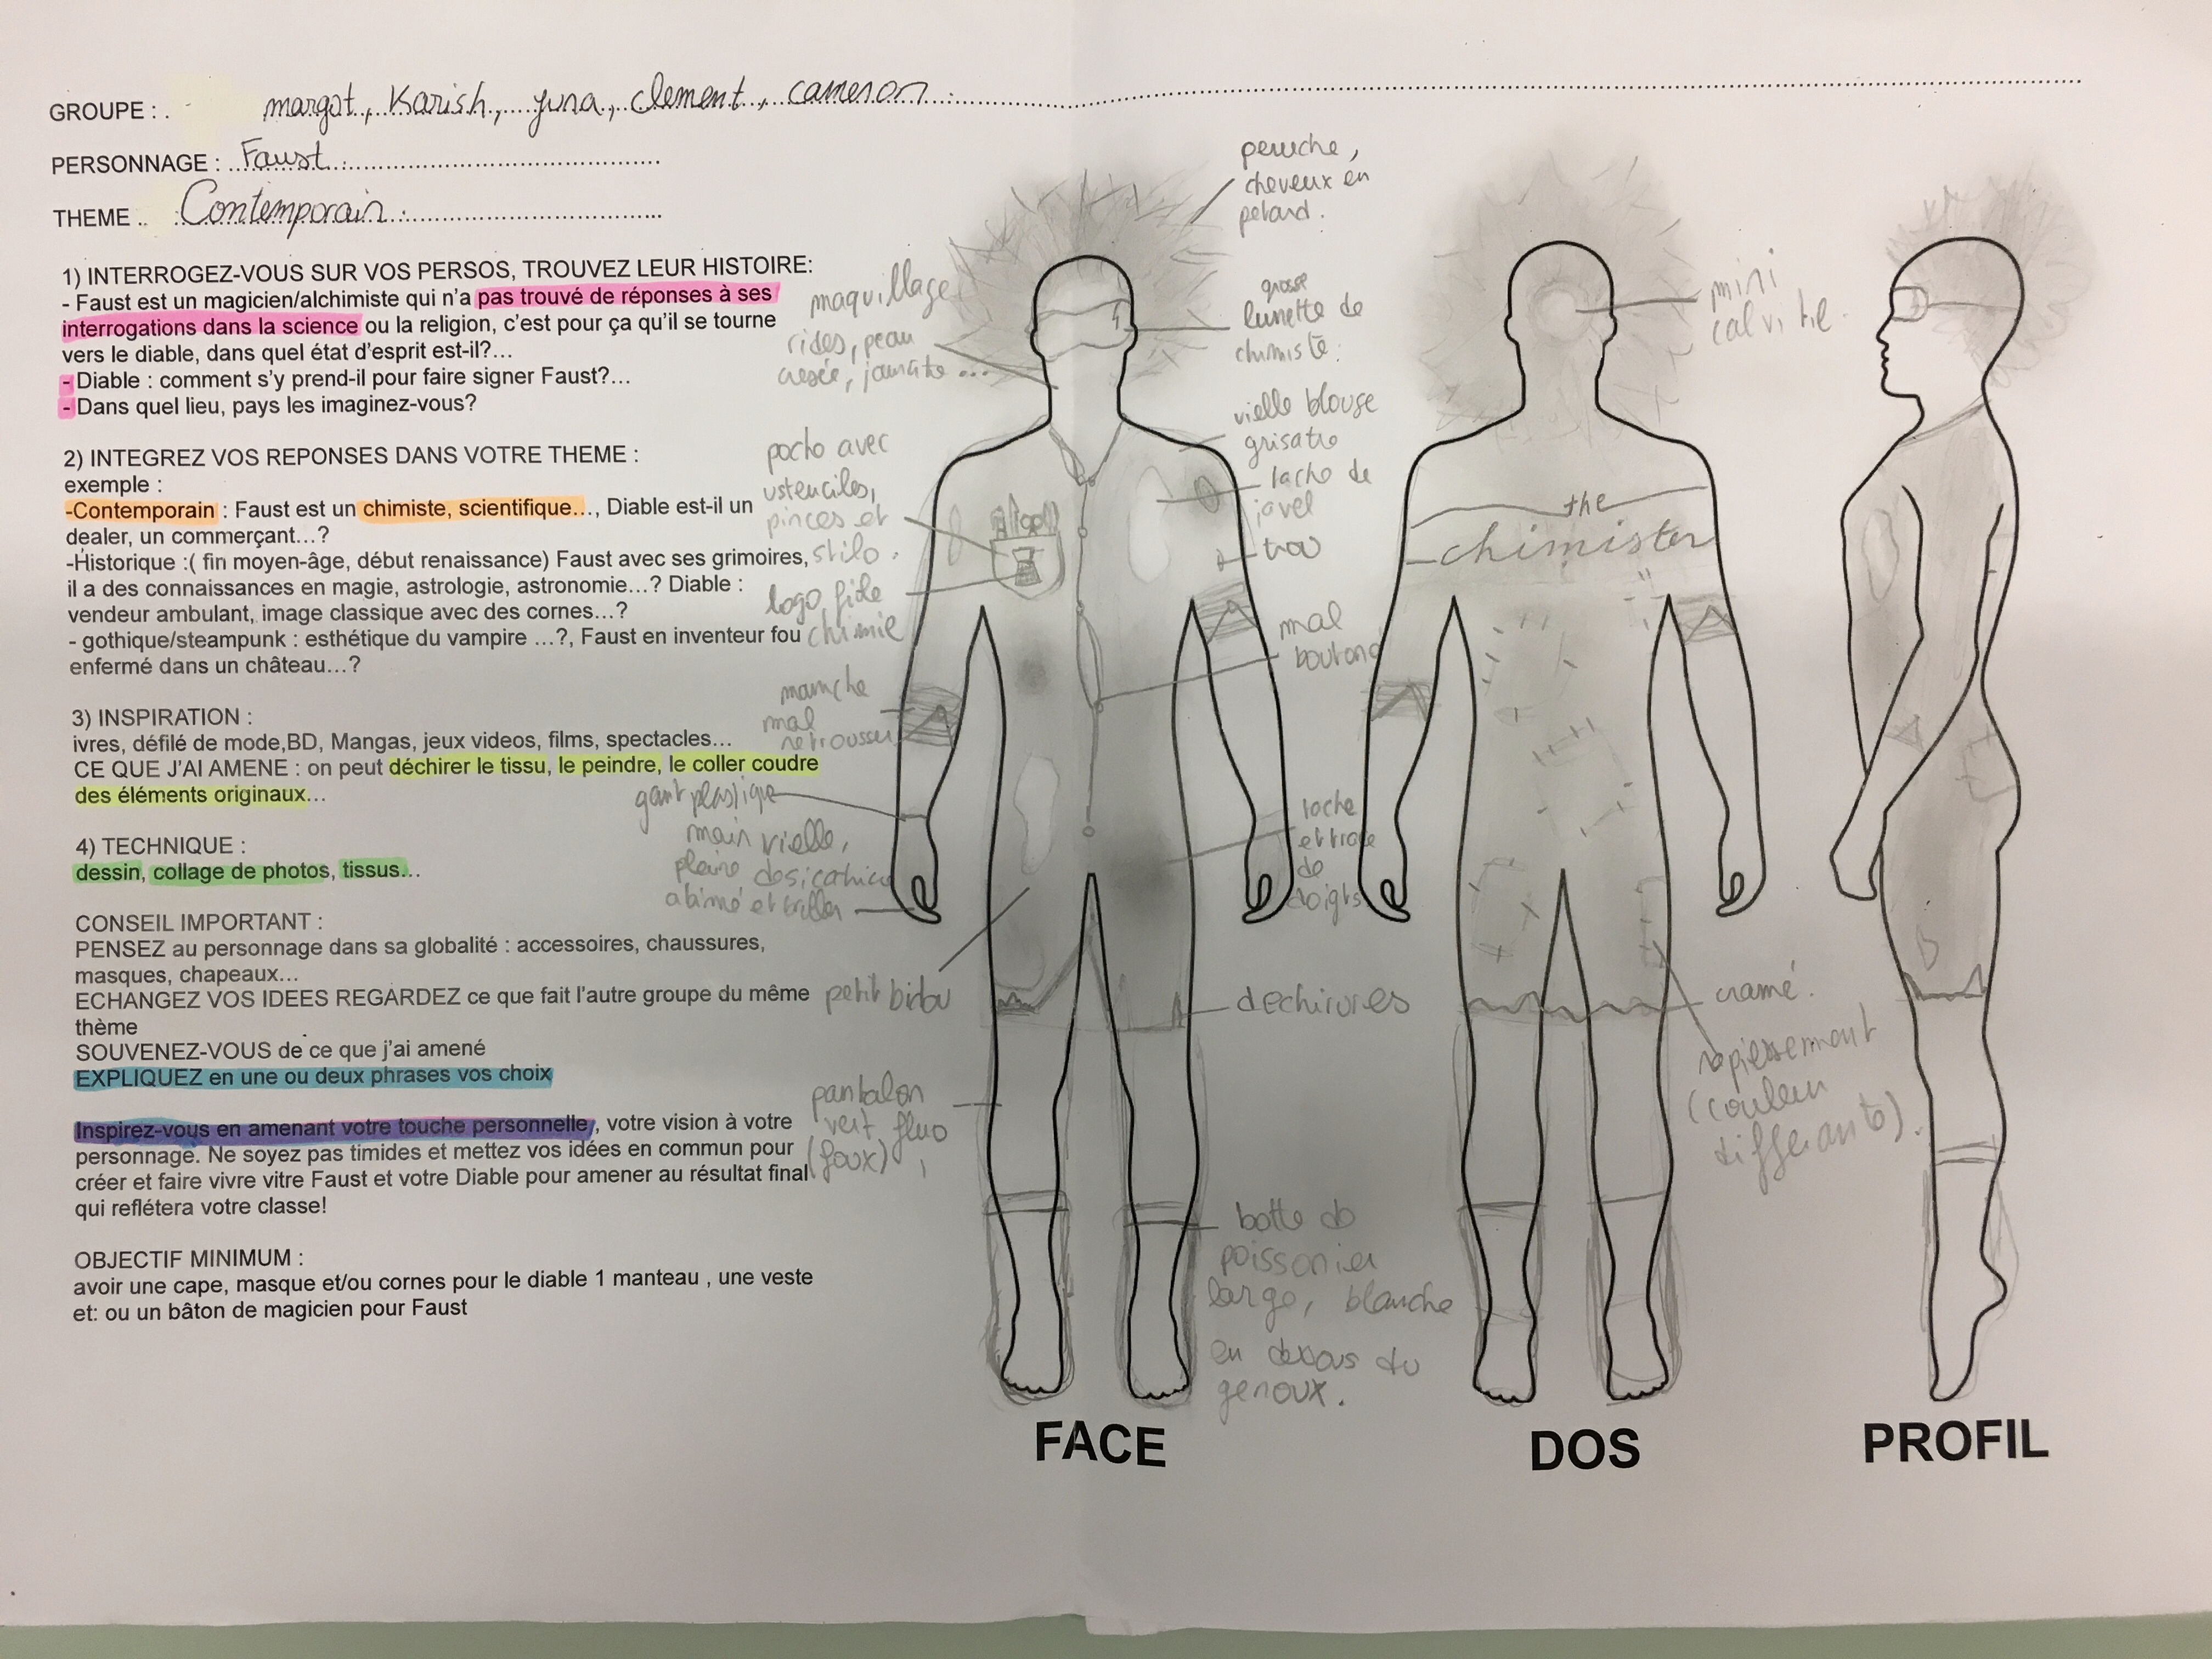 GROUPE : . margot, Karish, yuna, clement, cameron
PERSONNAGE : Faust
THEME .. Contemporain
1) INTERROGEZ-VOUS SUR VOS PERSOS, TROUVEZ LEUR HISTOIRE:
- Faust est un magicien/alchimiste qui n'a pas trouvé de réponses à ses
interrogations dans la science ou la religion, c'est pour ça qu'il se tourne
vers le diable, dans quel état d'esprit est-il?...
- Diable : comment s'y prend-il pour faire signer Faust?...
- Dans quel lieu, pays les imaginez-vous?
2) INTEGREZ VOS REPONSES DANS VOTRE THEME :
exemple :
-Contemporain : Faust est un chimiste, scientifique..., Diable est-il un
dealer, un commerçant...?
-Historique :( fin moyen-âge, début renaissance) Faust avec ses grimoires,
il a des connaissances en magie, astrologie, astronomie...? Diable :
vendeur ambulant, image classique avec des cornes...?
- gothique/steampunk : esthétique du vampire ...?, Faust en inventeur fou
enfermé dans un château...?
3) INSPIRATION :
ivres, défilé de mode,BD, Mangas, jeux videos, films, spectacles...
CE QUE J'AI AMENE : on peut déchirer le tissu, le peindre, le coller coudre
des éléments originaux...
4) TECHNIQUE :
dessin, collage de photos, tissus...
CONSEIL IMPORTANT :
PENSEZ au personnage dans sa globalité : accessoires, chaussures,
masques, chapeaux...
ECHANGEZ VOS IDEES REGARDEZ ce que fait l'autre groupe du même
thème
SOUVENEZ-VOUS de ce que j'ai amené
EXPLIQUEZ en une ou deux phrases vos choix
Inspirez-vous en amenant votre touche personnelle, votre vision à votre
personnage. Ne soyez pas timides et mettez vos idées en commun pour
créer et faire vivre vitre Faust et votre Diable pour amener au résultat final
qui reflétera votre classe!
OBJECTIF MINIMUM :
avoir une cape, masque et/ou cornes pour le diable 1 manteau , une veste
et: ou un bâton de magicien pour Faust
maquillage
rides, peau
poche avec
ustenciles,
pinces et
stilo.
logo fiole
chimie
manche
mal
retrousser
gant plastique
main vielle,
pleine de
abimé et
petit bidou
pantalon
vert fluo
perruche,
cheveux en
petard.
grosse
lunette de
chimiste.
vielle blouse
grisatre
tache de
javel
trou
mal
boutond
tache
et trace
de
doigts
dechirures
botte de
poissonier
large, blanche
en dessous du
genoux.
the
chimister
mini
calvitie.
cramé.
rapiessement
(couleur
differante).
FACE
DOS
PROFIL